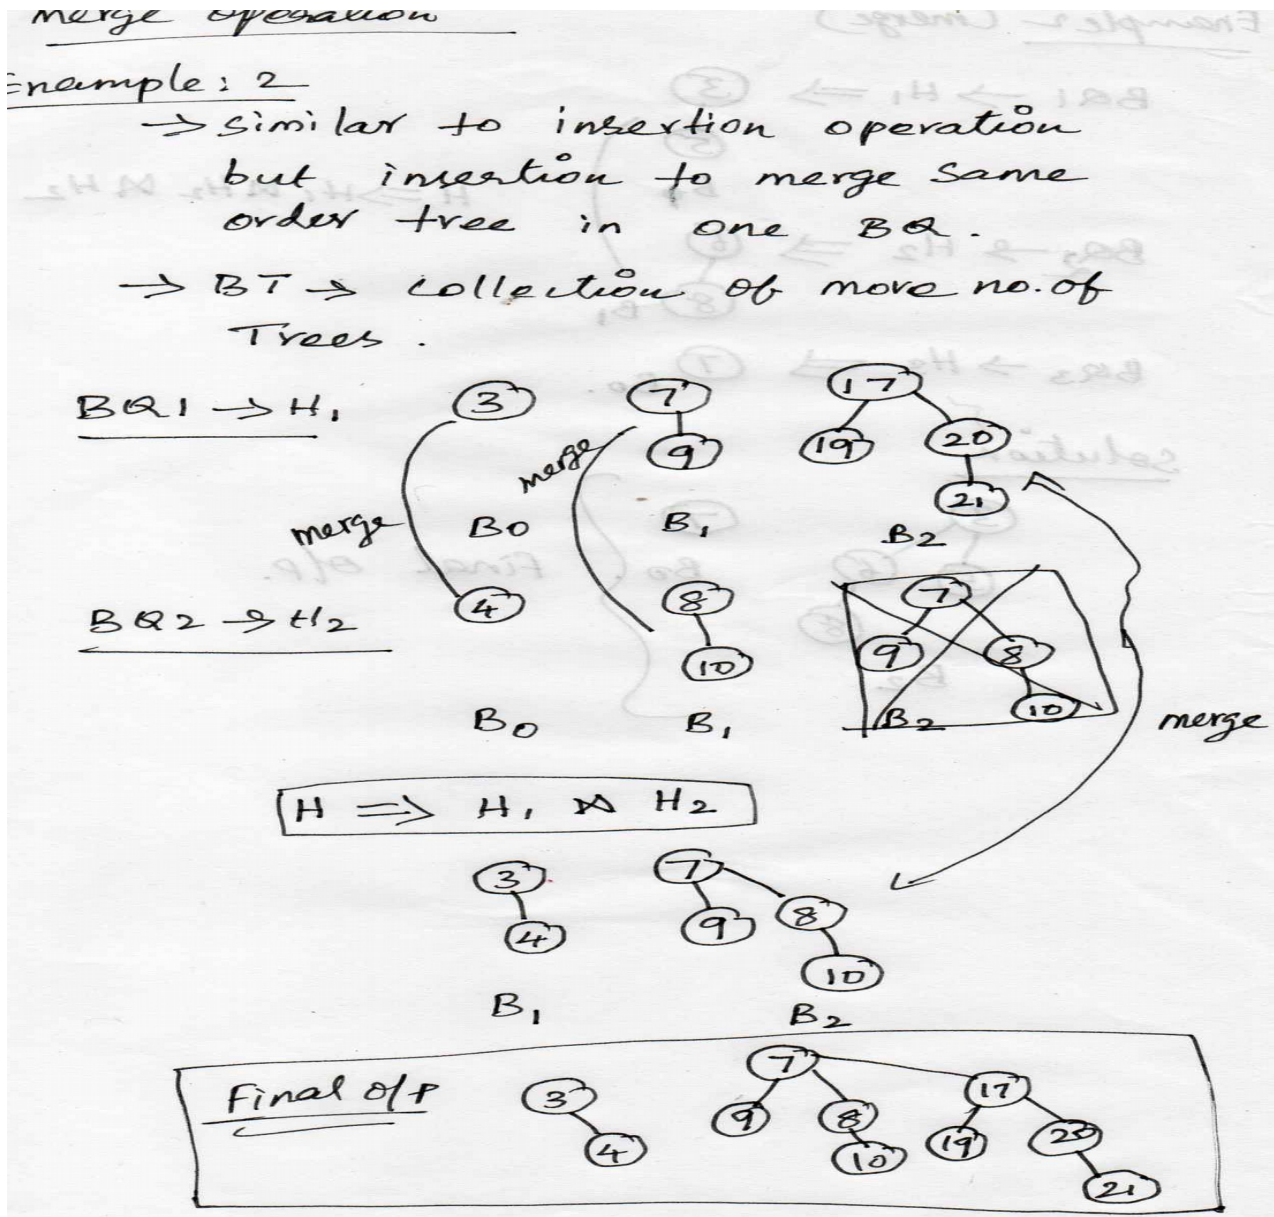 Merge operation
Example: 2
→ similar to insertion operation
but insertion to merge same
order tree in one BQ.
→ BT → collection of more no. of
Trees.
BQ1 → H1
3 7 17
9 19 20
21
merge merge
B0 B1 B2
BQ2 → H2
4 8 7
10 9 8
10
B0 B1 B2
merge
H ⇒ H1 ⋈ H2
3 7
4 9 8
10
B1 B2
Final O/P
3 7 17
4 9 8 19 20
10 21